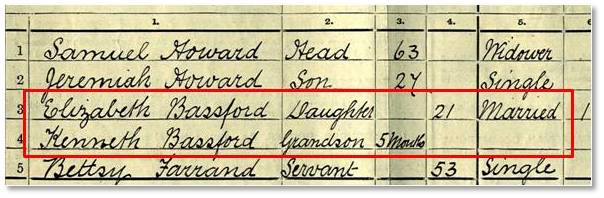 1. 2. 3. 4. 5. 6
1 Samuel Howard Head 63 Widower
2 Jeremiah Howard Son 27 Single
3 Elizabeth Bassford Daughter 21 Married 1
4 Kenneth Bassford Grandson 5 Months
5 Bettsy Farrand Servant 53 Single